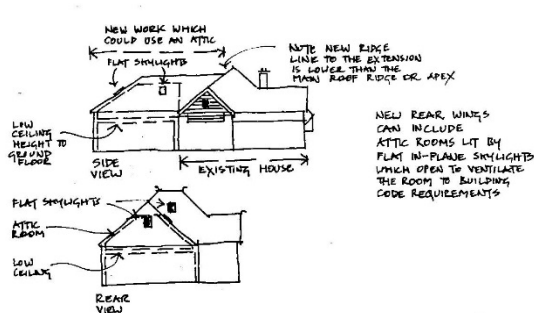 NEW WORK WHICH
COULD USE AN ATTIC
FLAT SKYLIGHTS
NOTE NEW RIDGE
LINE TO THE EXTENSION
IS LOWER THAN THE
MAIN ROOF RIDGE OR APEX
LOW
CEILING
HEIGHT TO
GROUND
FLOOR
SIDE
VIEW
EXISTING HOUSE
NEW REAR WINGS
CAN INCLUDE
ATTIC ROOMS LIT BY
FLAT IN-PLANE SKYLIGHTS
WHICH OPEN TO VENTILATE
THE ROOM TO BUILDING
CODE REQUIREMENTS
FLAT SKYLIGHTS
ATTIC
ROOM
LOW
CEILING
REAR
VIEW